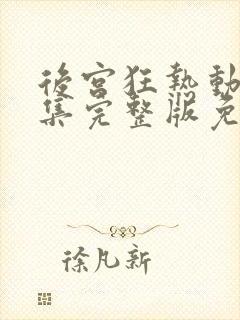 後宮狂熱動
集完整版免
徐凡新